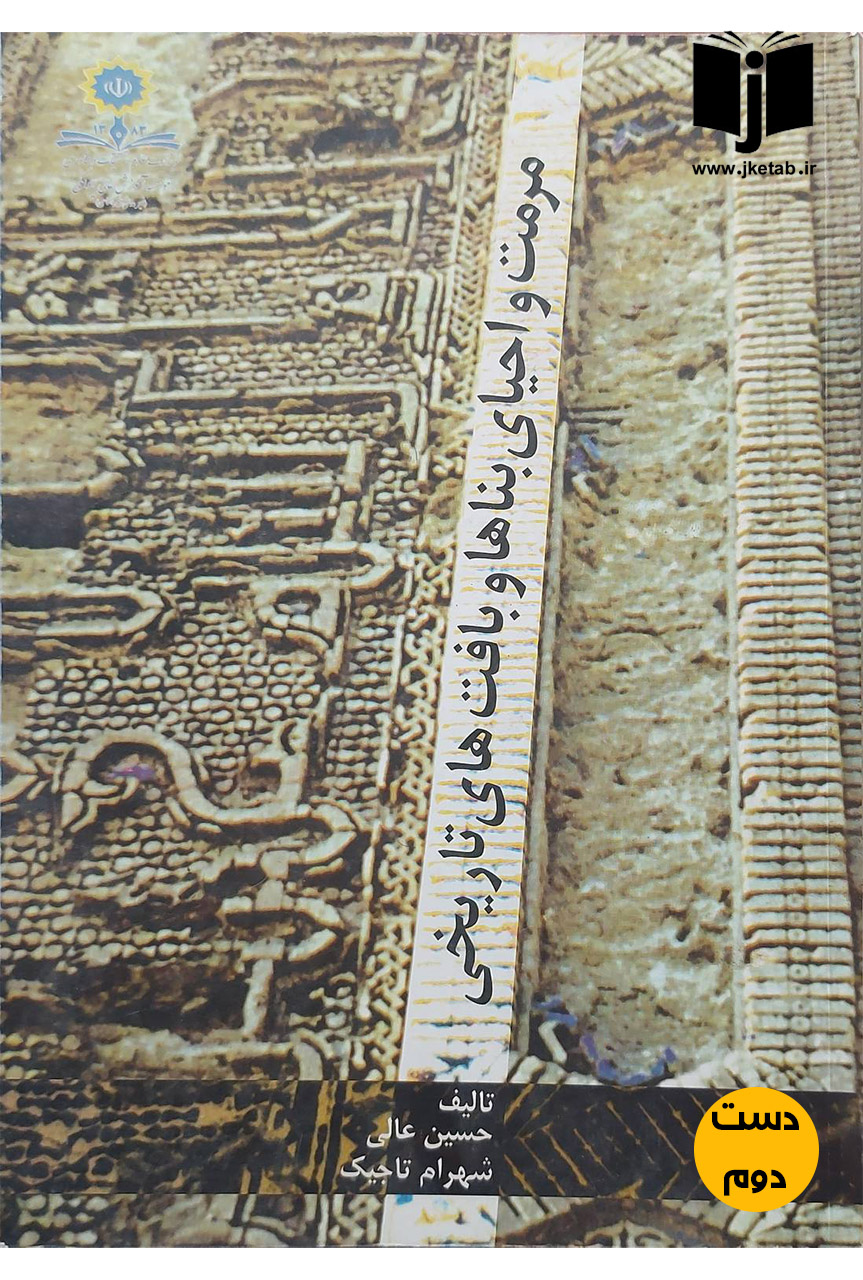 www.jketab.ir
۱۳۸۳
مرمت و احیای بناها و بافت های تاریخی
تالیف
حسین عالی
شهرام تاجیک
دست
دوم